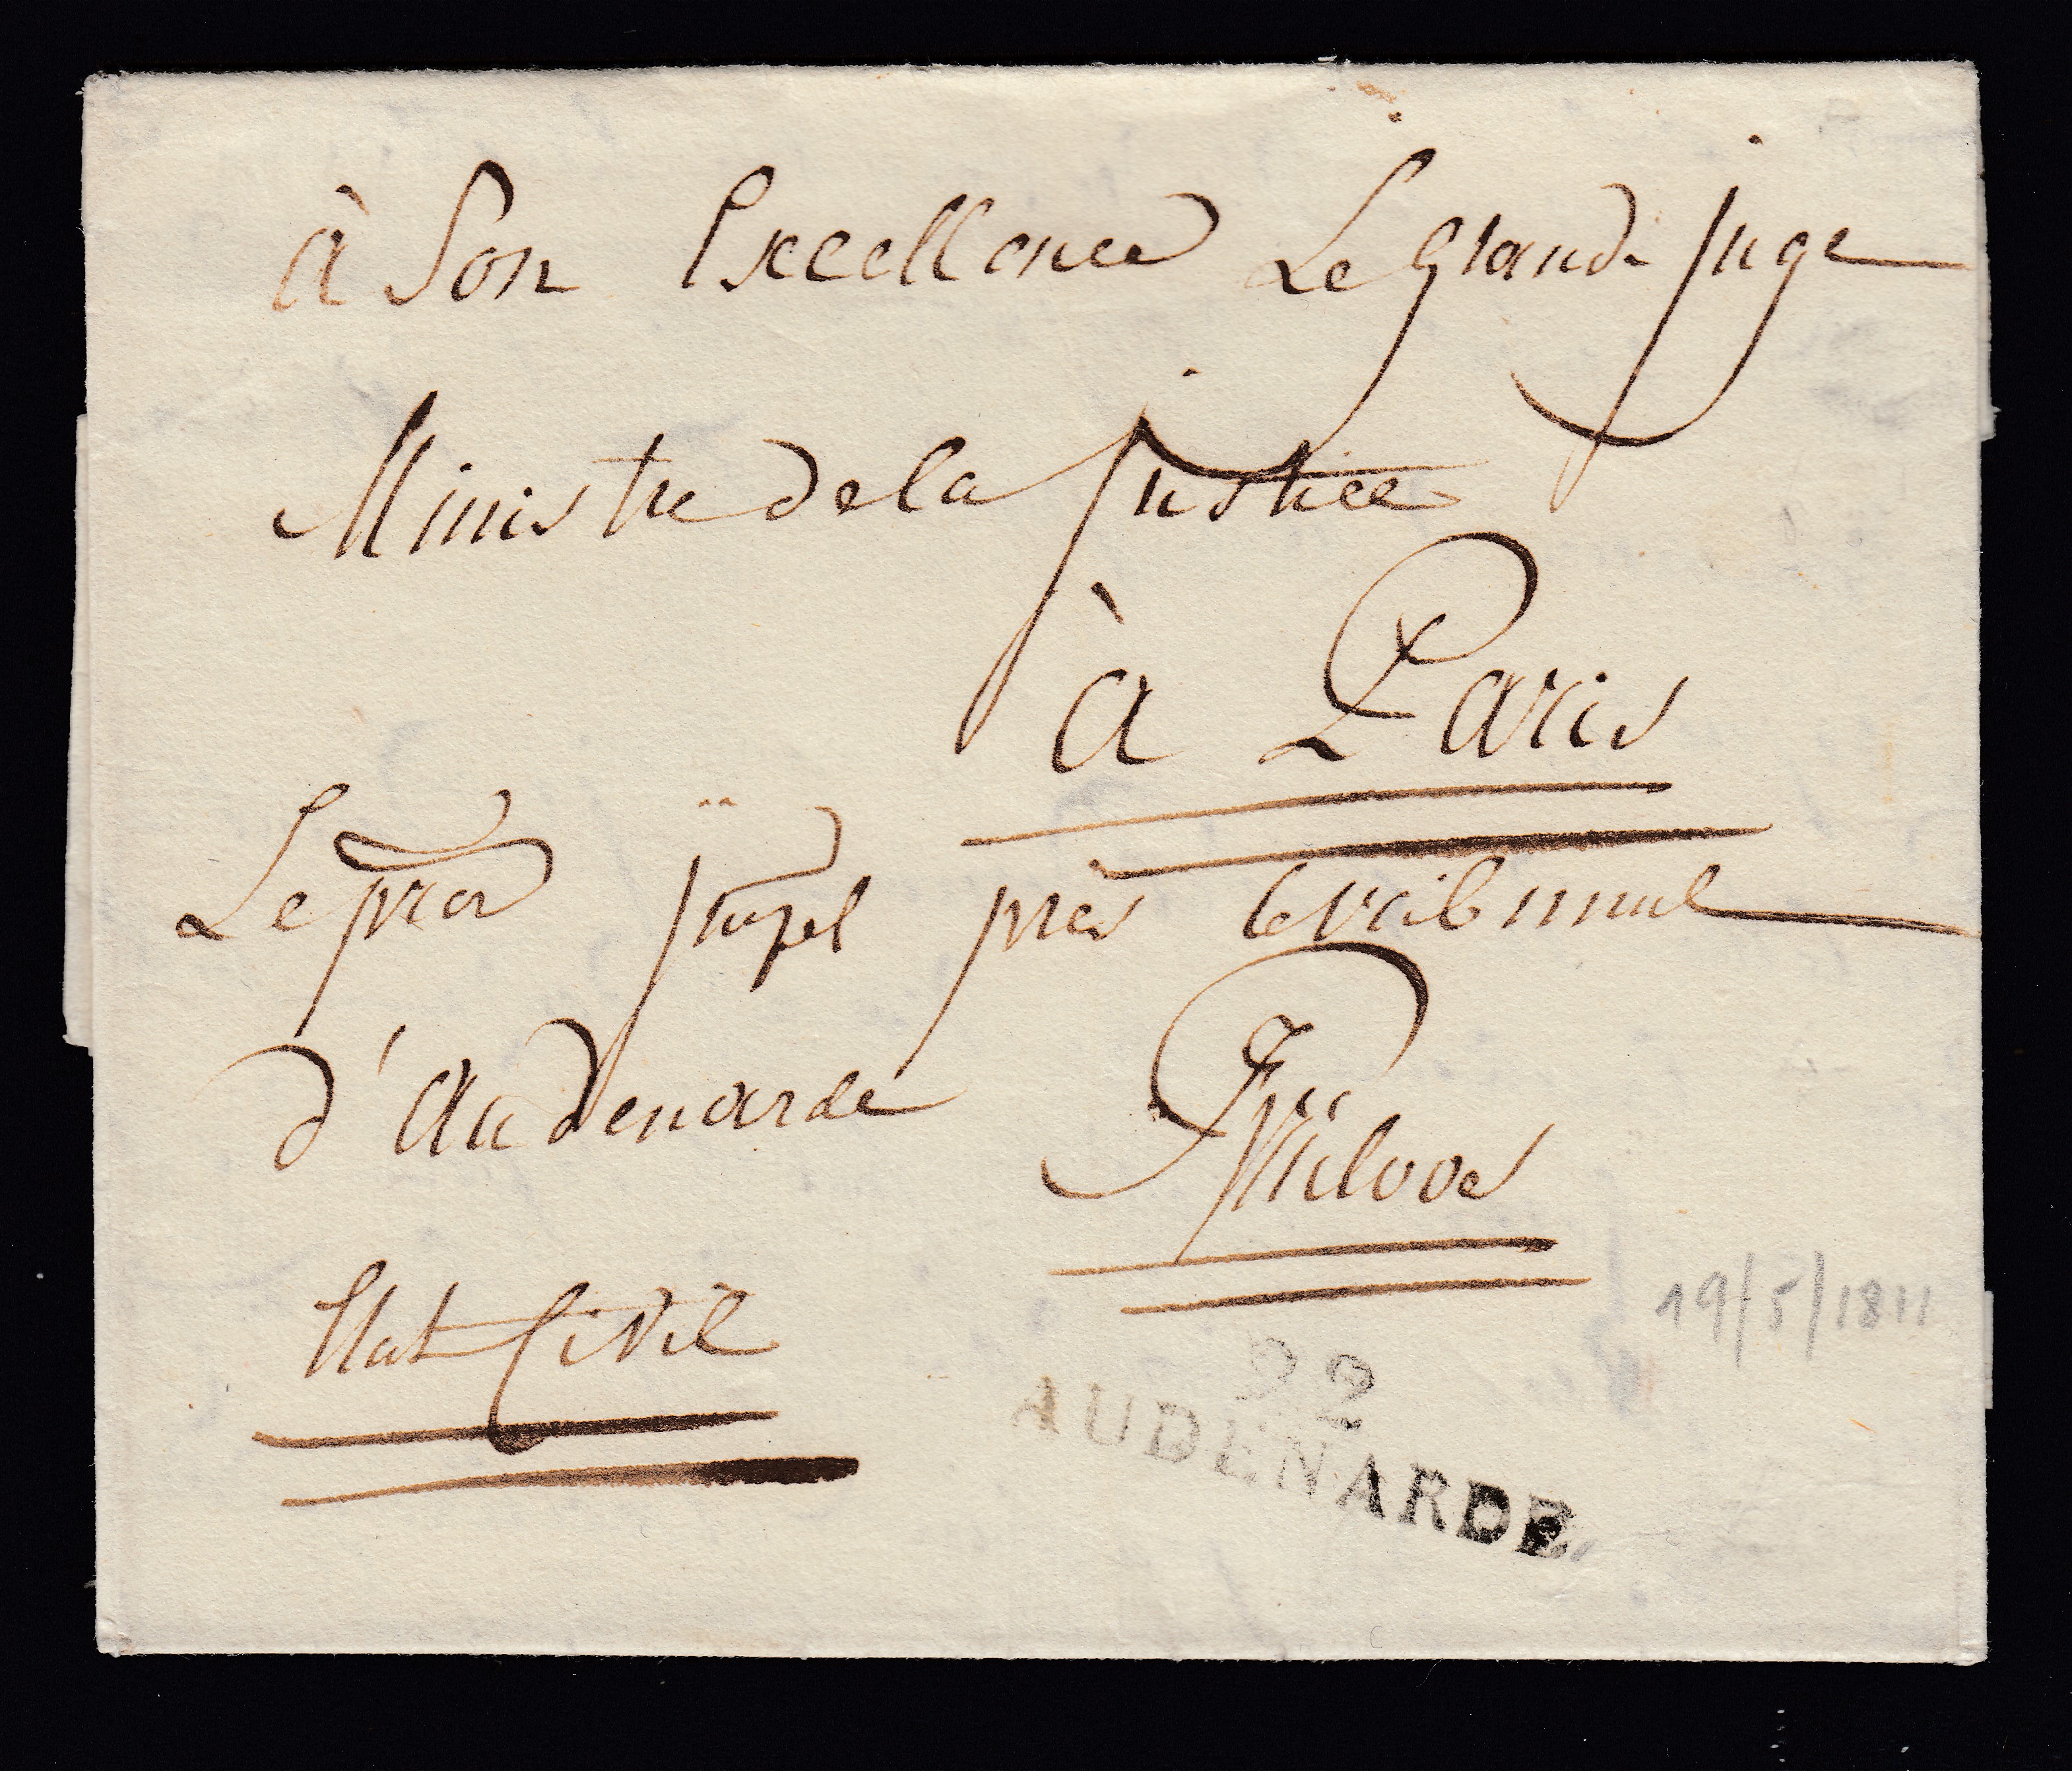 à Son Excellence Le Grand Juge
Ministre de la Justice
à Paris
Le procr impel près le tribunal
d'Audenarde
Etat Civil
19/5/1811
92
AUDENARDE